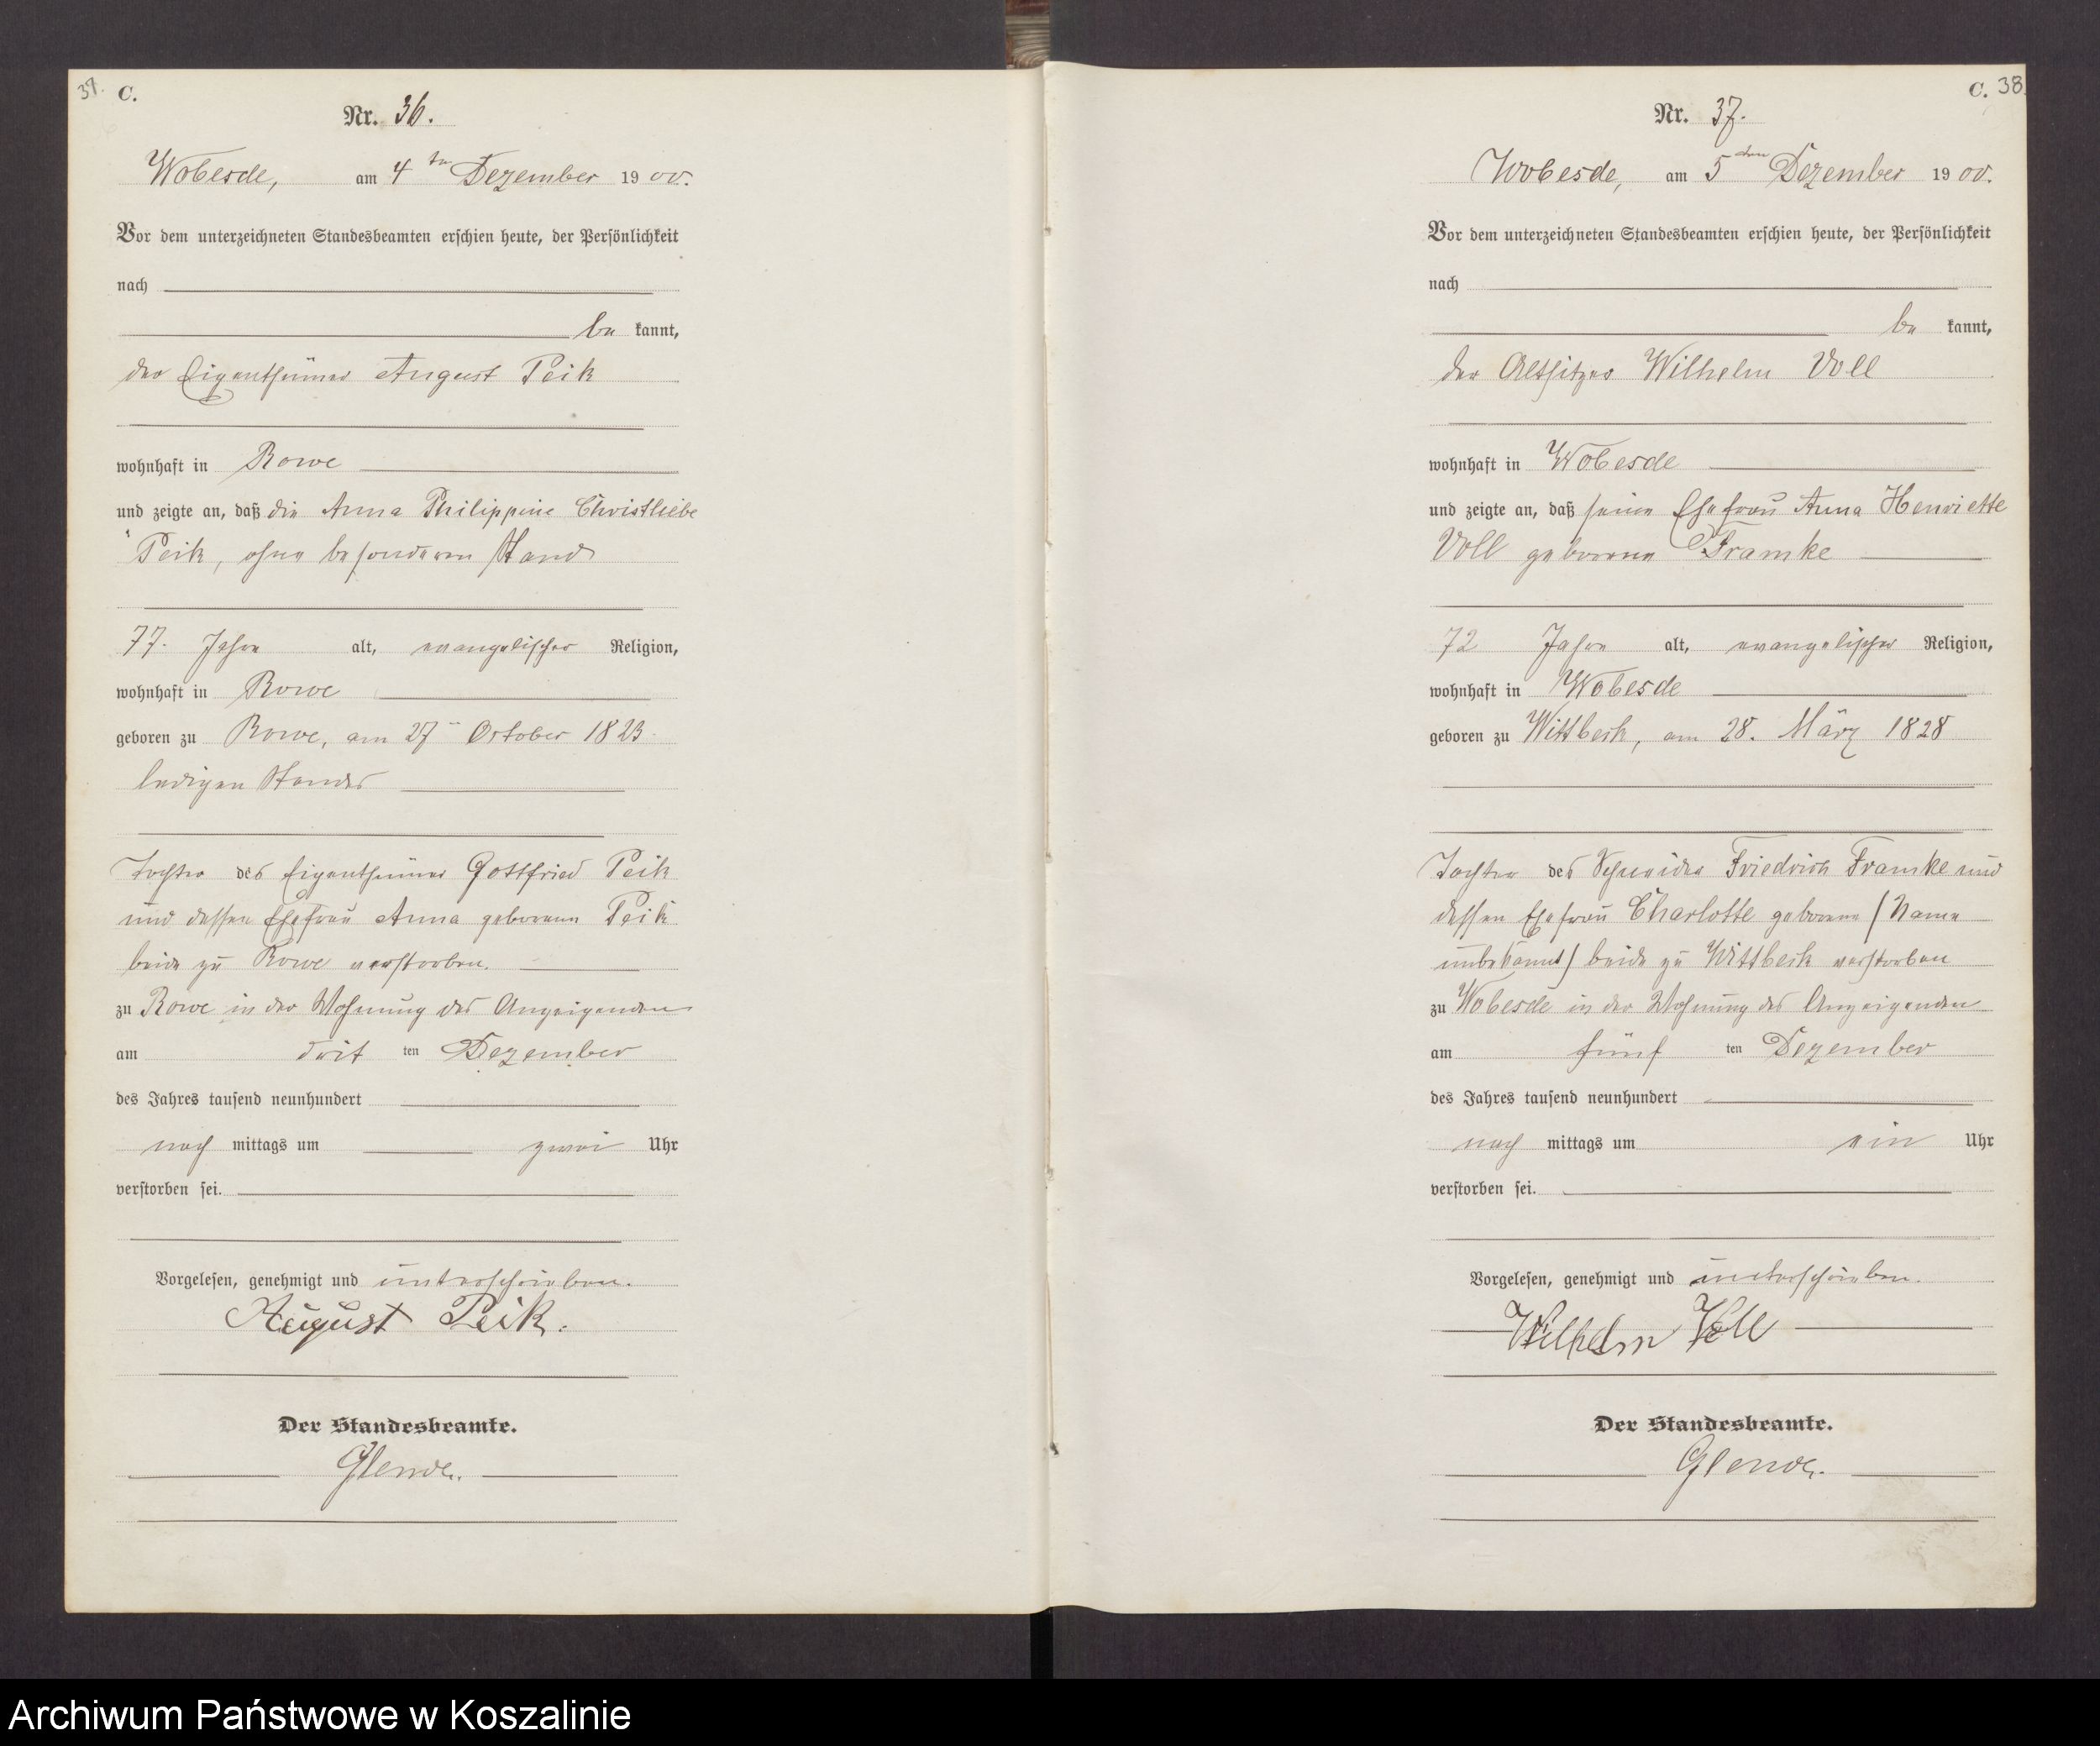 37. C.
Nr. 36.
Wobesde, am 4ten Dezember 1900.
Vor dem unterzeichneten Standesbeamten erschien heute, der Persönlichkeit
nach
be kannt,
der Eigenthümer August Peik
wohnhaft in Rowe
und zeigte an, daß die Anna Philippine Christliebe
Peik, ohne besonderen Stand
77. Jahre alt, evangelischer Religion,
wohnhaft in Rowe
geboren zu Rowe, am 27 October 1823
ledigen Standes
Tochter des Eigenthümer Gottfried Peik
und dessen Ehefrau Anna geborene Peik
beide zu Rowe verstorben.
zu Rowe in der Wohnung des Anzeigenden
am drit ten Dezember
des Jahres tausend neunhundert
nach mittags um zwei Uhr
verstorben sei.
Vorgelesen, genehmigt und unterschrieben.
August Peik.
Der Standesbeamte.
C. 38.
Nr. 37.
Wobesde, am 5ten Dezember 1900.
Vor dem unterzeichneten Standesbeamten erschien heute, der Persönlichkeit
nach
be kannt,
der Altsitzer Wilhelm Voll
wohnhaft in Wobesde
und zeigte an, daß seine Ehefrau Anna Henriette
Voll geborene Framke
72 Jahre alt, evangelischer Religion,
wohnhaft in Wobesde
geboren zu Wittbeck, am 28. März 1828
Tochter des Schneider Friedrich Framke und
dessen Ehefrau Charlotte geborene (Name
unbekannt) beide zu Wittbeck verstorben
zu Wobesde in der Wohnung des Anzeigenden
am fünf ten Dezember
des Jahres tausend neunhundert
nach mittags um ein Uhr
verstorben sei.
Vorgelesen, genehmigt und unterschrieben.
Wilhelm Voll
Der Standesbeamte.
Archiwum Państwowe w Koszalinie